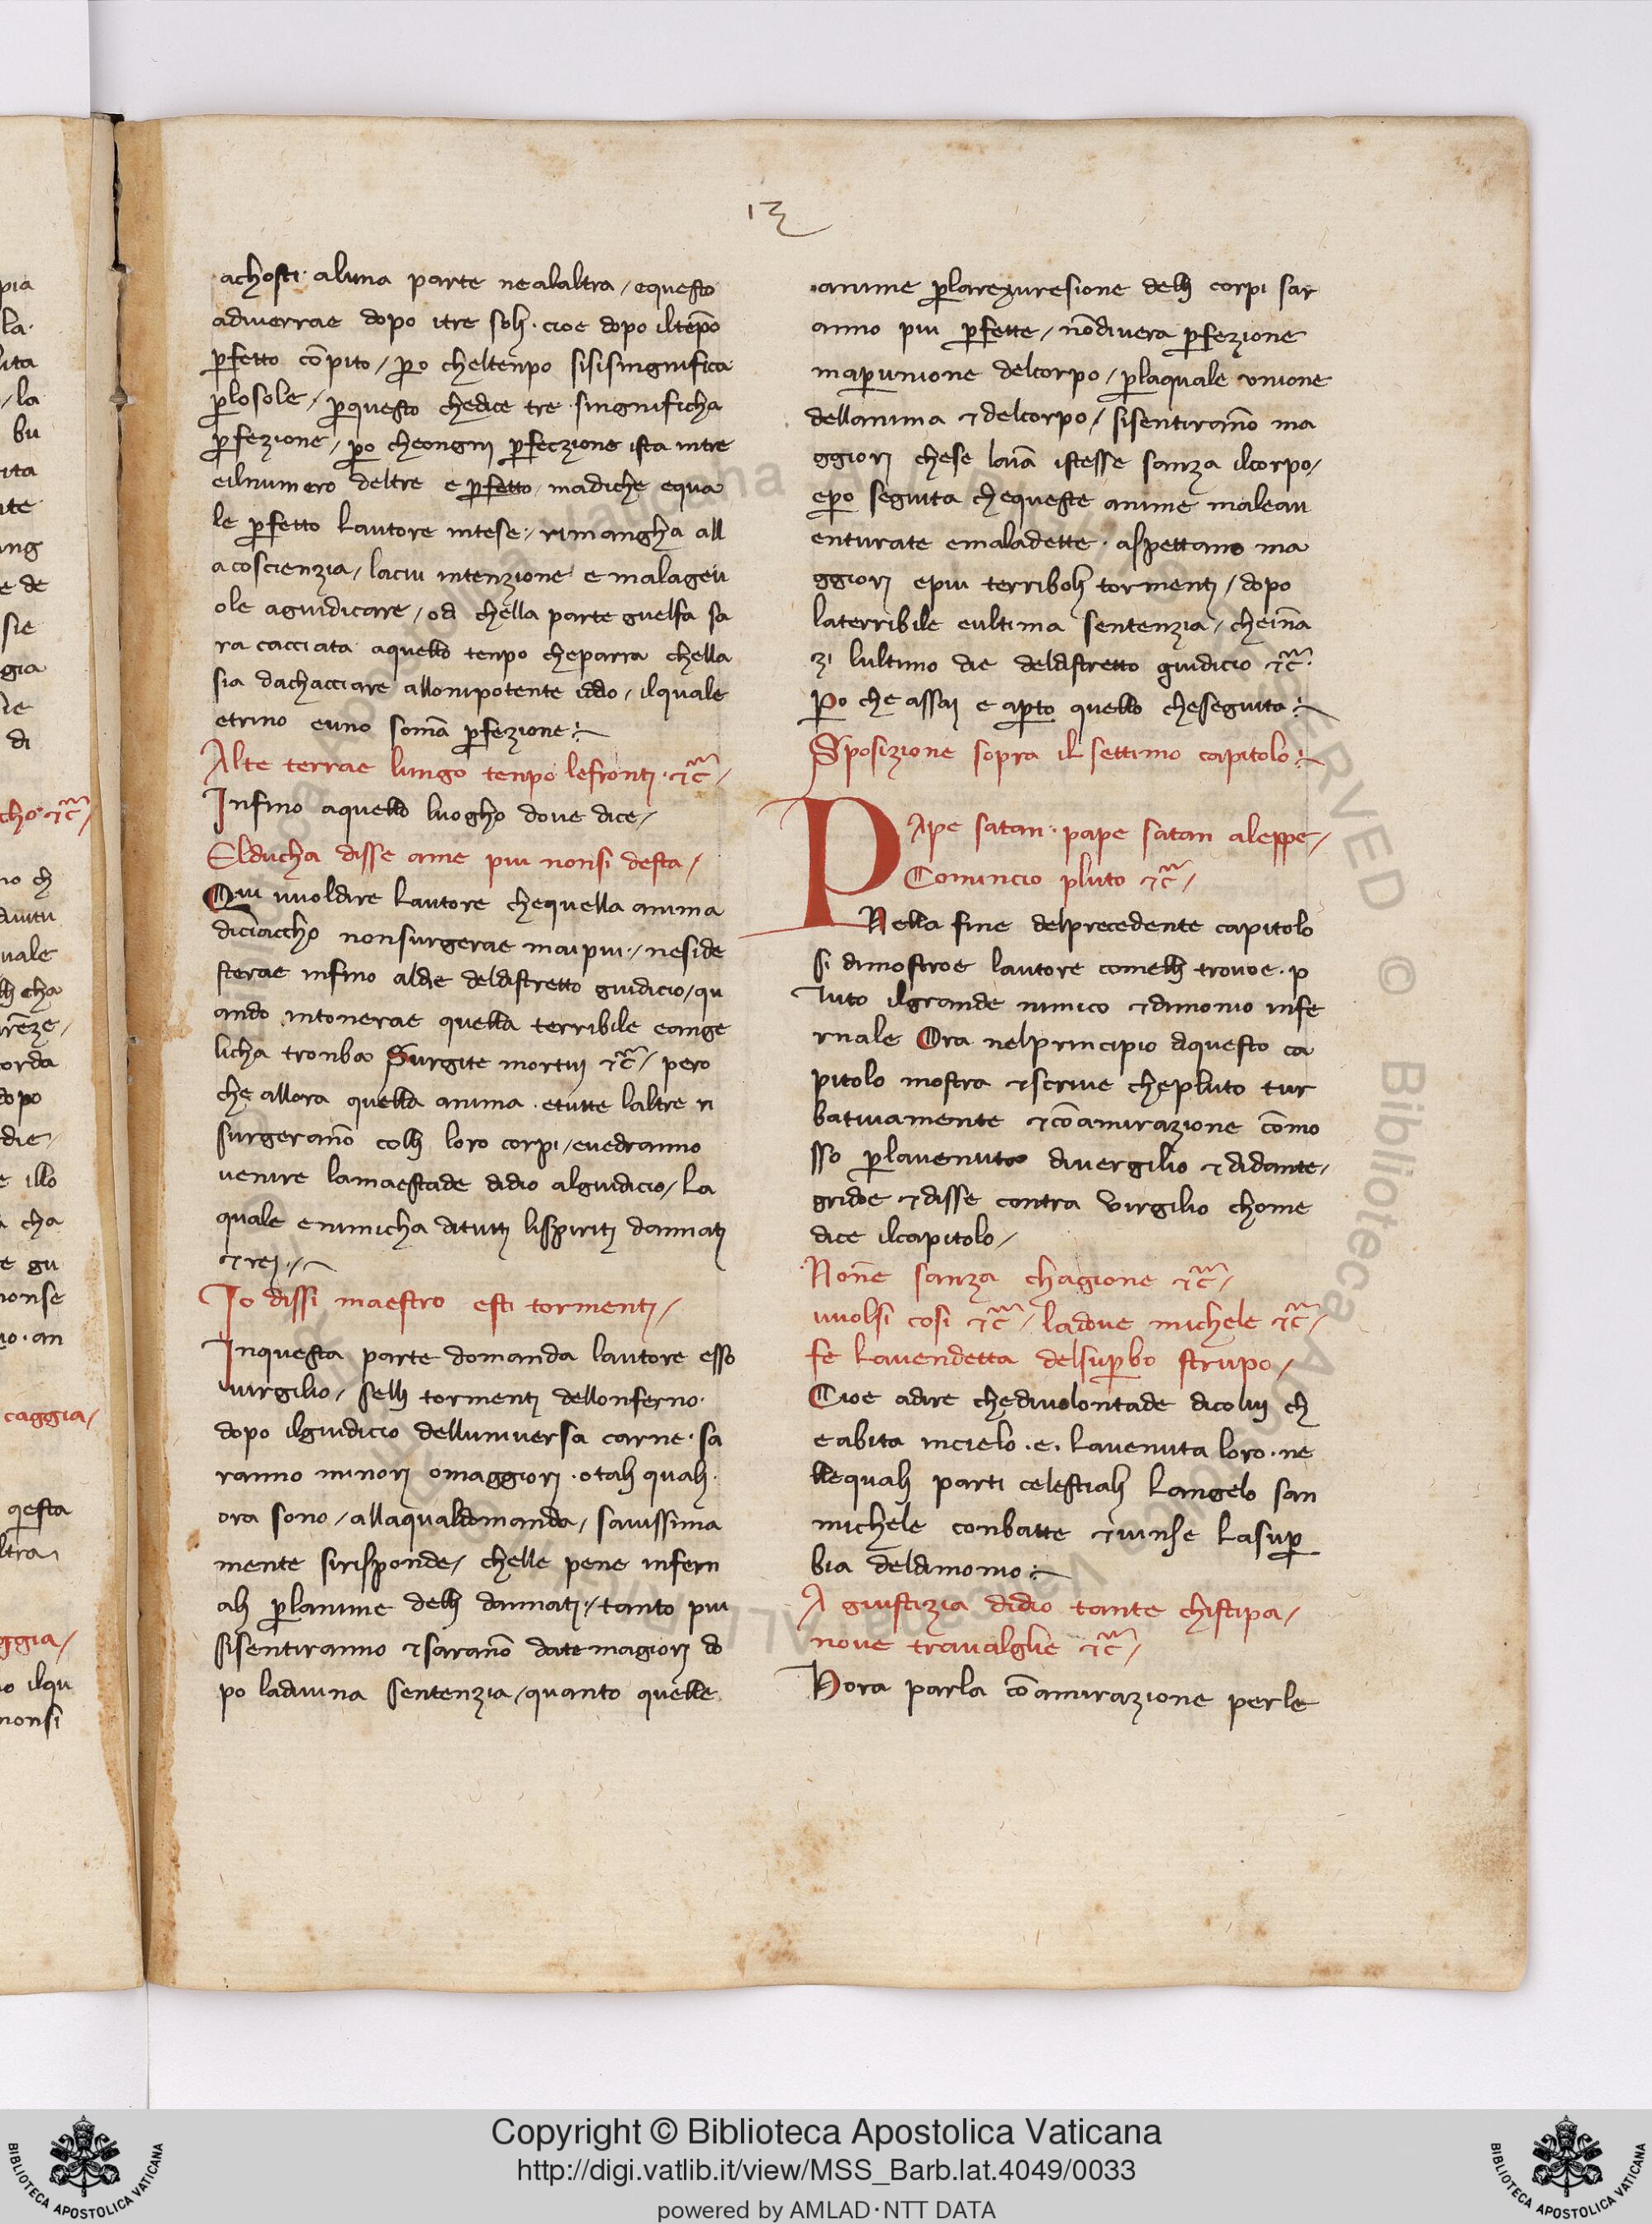 13
achosti · aluna parte nealaltra / equesto
adiuerrae dopo itre soli · cioe dopo iltēpo
ꝑfetto cōpito / ꝑo cheltenpo sisisingnifica
ꝑlosole / ꝑquesto chedice tre · singnificha
ꝑfezione / ꝑo cheongnj ꝑfeczione ista intre
eilnumero deltre e ꝑfetto / madiche equa
le ꝑfetto lautore intese / rimangha all
a coscienzia / lacui intenzione e malageu
ole agiudicare / od chella parte guelfa sa
ra cacciata aquello tenpo cheparra chella
sia dachacciare allonipotente iddo / ilquale
etrino euno somā ꝑfezione :
Alte terrae lungo tenpo lefrontj · ⁊c̃ /
Infino aquello luogho doue dice /
Elducha disse ame piu nonsi desta /
Qui uuoldire lautore chequella anima
diciaccho nonsurgerae maipiu · / neside
sterae infino aldie deldistretto giudicio / qu
ando intonerae quella terribile eange
licha tronba Surgite mortuj ⁊c̃ / pero
che allora quella anima · etutte laltre ri
surgerāno colli loro corpi / euedranno
uenire lamaestade didio algiudicio / la
quale enimicha dituttj lispiritj dannatj
⁊ rej · /
Io dissi maestro esti tormentj /
Inquesta parte domanda lautore esso
uirgilio / selli tormentj dellonferno ·
dopo ilgiudicio delluniuersa carne · sa
ranno minorj omaggiorj · otali quali ·
ora sono / allaqualdomanda / sauissima
mente sirisponde / chelle pene infern
ali ꝑlanime delli dannatj · / tanto piu
sisentiranno ⁊sarāno date magiorj do
po ladiuina sentenzia / quanto quelle
anime ꝑlarezuresione delli corpi sar
anno piu ꝑfette / nōdiuera ꝑfezione
maꝑunione delcorpo / ꝑlaquale vnione
dellanima ⁊ delcorpo / sisentirāno ma
ggiorj chese istesse sanza ilcorpo /
eꝑo seguita chequeste anime maleau
enturate emaladette · aspettano ma
ggiorj epiu terriboli tormentj / dopo
laterribile eultima sentenzia / cheinā
zi lultimo die deldistretto giudicio ⁊c̃ ·
Po che assaj e aꝑto quello cheseguita :
Sposizione sopra il settimo capitolo :
PApe satan · pape satan aleppe /
Cominciō pluto ⁊c̃ /
Nella fine delprecedente capitolo
si dimostroe lautore comelli trouoe · p
luto ilgrande nimico ⁊dimonio infe
rnale Ora nelprincipio diquesto ca
pitolo mostra ⁊scriue chepluto tur
batiuamente ⁊cōamirazione cōmo
sso ꝑlauenuta diuergilio ⁊ didante /
gridoe ⁊disse contra virgilio chome
dice ilcapitolo /
Nonē sanza chagione ⁊c̃ /
uuolsi cosi ⁊c̃ / ladoue michele ⁊c̃ /
fe lauendetta delsuꝑbo strupo /
Cioe adire chediuolontade dicoluj ch
eabita incielo · e · lauenuta loro · ne
llequali parti celestiali langelo san
michele conbatte ⁊uinse lasuꝑ
bia deldimonio :
A giustizia didio tante chistipa /
noue traualglie ⁊c̃ /
Hora parla cōamirazione perle
Copyright © Biblioteca Apostolica Vaticana
http://digi.vatlib.it/view/MSS_Barb.lat.4049/0033
powered by AMLAD·NTT DATA